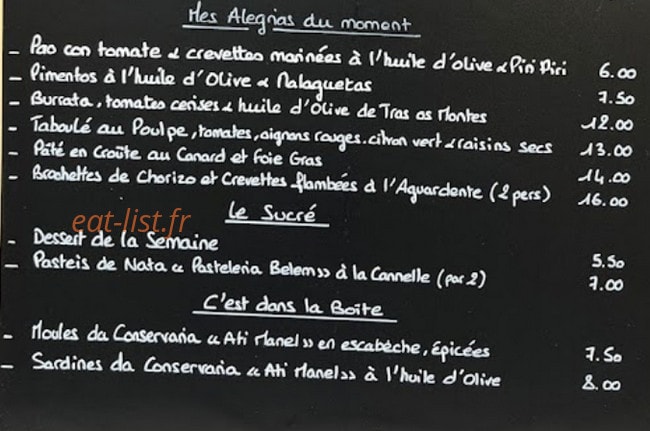 Mes Alegrias du moment
- Pao con tomate & crevettes marinées à l'huile d'olive & Piri Piri 6.00
- Pimentos à l'huile d'Olive & Malaguetas 7.50
- Burrata, tomates cerises & huile d'Olive de Tras os Montes 12.00
- Taboulé au Poulpe, tomates, oignons rouges, citron vert & raisins secs 13.00
- Pâté en Croûte au Canard et Foie Gras 14.00
- Brochettes de Chorizo et Crevettes flambées à l'Aguardente (2 pers) 16.00
eat-list.fr
Le Sucré
- Dessert de la Semaine 5.50
- Pasteis de Nata « Pasteleria Belem » à la Cannelle (par 2) 7.00
C'est dans la Boîte
- Moules da Conservaria « Ati Manel » en escabèche, épicées 7.50
- Sardines da Conservaria « Ati Manel » à l'huile d'Olive 8.00